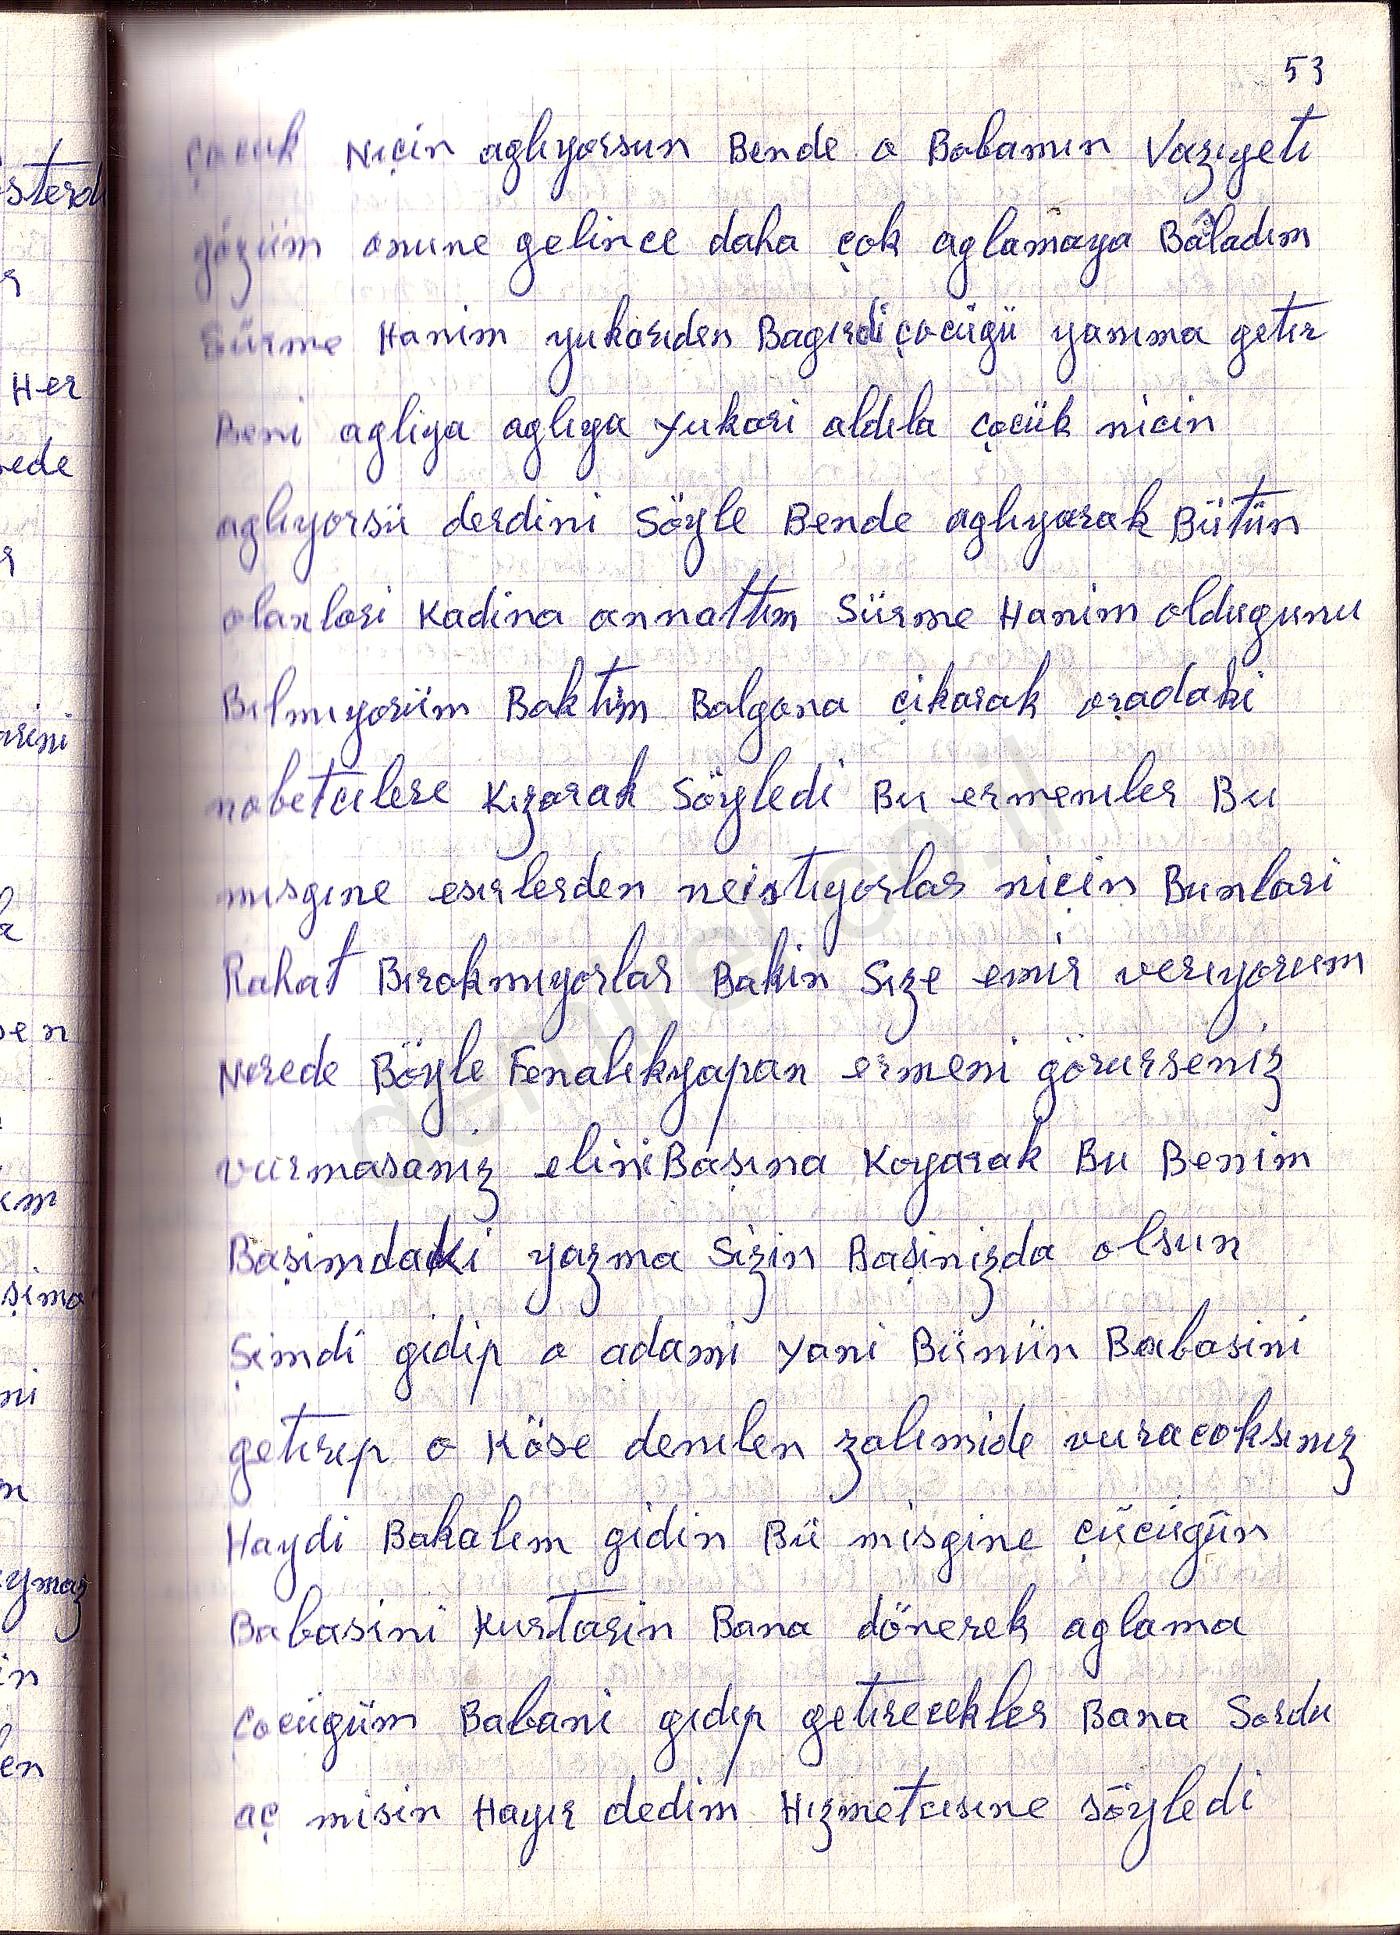 53
çocuk Niçin aglıyorsun Bende o Babamın Vazıyetı
gözüm onune gelince daha çok aglamaya Bâladım
Sürme Hanim yukarıden Bagırdi çocügü yanıma getır
Beni agliya aglıya Yukari aldıla çocük nicin
aglıyorsü derdini Söyle Bende aglıyarak Bütün
olanlari Kadina annattım Sürme Hanim oldugunu
Bılmıyorüm Baktım Balgona çikarak oradaki
nobetcılere Kızarak Söyledi Bu ermenıler Bu
mısgıne esırlerden neistıyorlar niçin Bunlari
Rahat Bırakmıyorlar Bakin Sıze emir verıyorum
Nerede Böyle Fenalıkyapan ermeni görurseniz
vurmasanız elini Başına Koyarak Bu Benim
Başimdaki yazma Sizin Başinizda olsun
Şimdi gidip o adami Yani Bünün Babasini
getırıp o Köse denılen zalımide vuracaksınız
Haydi Bakalım gidin Bü misgine çücügün
Babasini Kurtarin Bana dönerek aglama
çocügüm Babani gıdıp getırecekler Bana Sordu
aç misin Hayır dedim Hızmetcısıne söyledi
sterdı
Her
arini
şima
ymaz